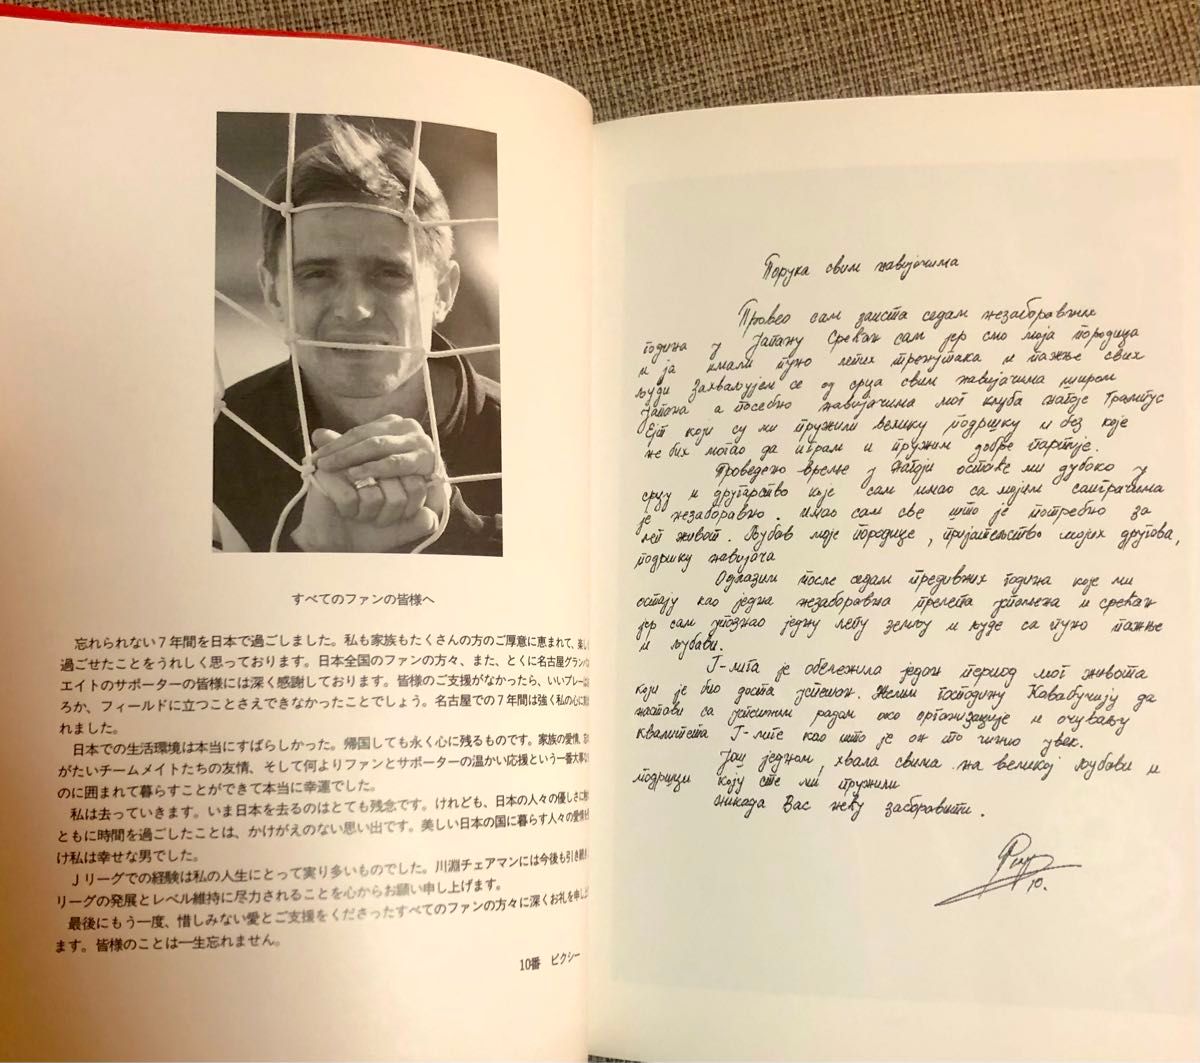 すべてのファンの皆様へ
忘れられない7年間を日本で過ごしました。私も家族もたくさんの方のご厚意に恵まれて、楽し
過ごせたことをうれしく思っております。日本全国のファンの方々、また、とくに名古屋グランパ
エイトのサポーターの皆様には深く感謝しております。皆様のご支援がなかったら、いいプレーは
ろか、フィールドに立つことさえできなかったことでしょう。名古屋での7年間は強く私の心に
れました。
日本での生活環境は本当にすばらしかった。帰国しても永く心に残るものです。家族の愛情、
がたいチームメイトたちの友情、そして何よりファンとサポーターの温かい応援という一番大事な
のに囲まれて暮らすことができて本当に幸運でした。
私は去っていきます。いま日本を去るのはとても残念です。けれども、日本の人々の優しさに
ともに時間を過ごしたことは、かけがえのない思い出です。美しい日本の国に暮らす人々の愛情を
け私は幸せな男でした。
Jリーグでの経験は私の人生にとって実り多いものでした。川淵チェアマンには今後も引き続き
リーグの発展とレベル維持に尽力されることを心からお願い申し上げます。
最後にもう一度、惜しみない愛とご支援をくださったすべてのファンの方々に深くお礼を申し上
ます。皆様のことは一生忘れません。
10番 ピクシー
Порука свим навијачима
Провео сам заиста седам незаборавних
година у Јапану Срећан сам јер смо моја породица
и ја имали пуно лепих тренутака и пажње свих
људи Захваљујем се од срца свим навијачима широм
Јапана а посебно навијачима мог клуба Нагоје Грампус
Ејт који су ми пружили велику подршку и без које
не бих могао да играм и пружим добре партије.
Проведено време у Нагоји остаће ми дубоко у
срцу и другарство које сам имао са мојим саиграчима
је незаборавно. Имао сам све што је потребно за
леп живот. Љубав моје породице, пријатељство мојих другова,
подршку навијача
Одлазим после седам предивних година које ми
остају као једна незаборавна прелепа успомена и срећан
јер сам упознао једну лепу земљу и људе са пуно пажње
и љубави.
Ј-лига је обележила један период мог живота
који је био доста успешан. Желим господину Кавабучију да
настави са успешним радом око организације и очувању
квалитета Ј-лиге као што је он то чинио увек.
Још једном, хвала свима на великој љубави и
подршци коју сте ми пружили
никада Вас нећу заборавити.
10.